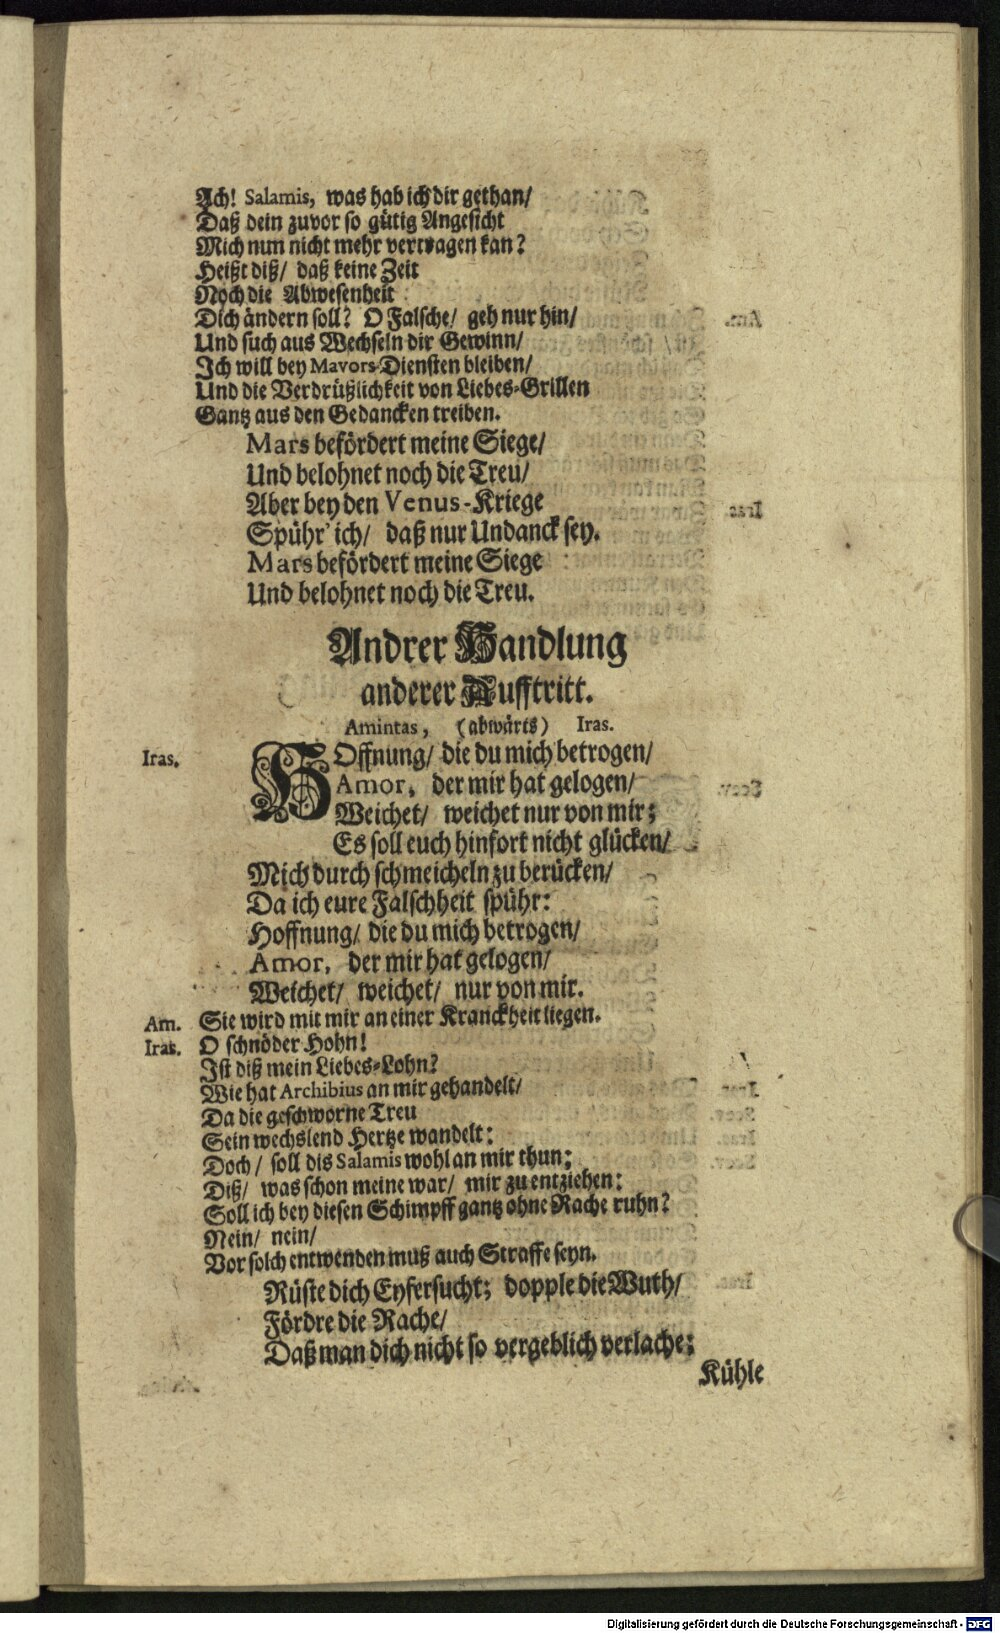 Ach! Salamis, was hab ich dir gethan/
Daß dein zuvor so gütig Angesicht
Mich nun nicht mehr vertragen kan?
Heißt diß/ daß keine Zeit
Noch die Abwesenheit
Dich ändern soll? O Falsche/ geh nur hin/
Und such aus Wechseln dir Gewinn/
Ich will bey Mavors-Diensten bleiben/
Und die Verdrüßlichkeit von Liebes-Grillen
Gantz aus den Gedancken treiben.
Mars befördert meine Siege/
Und belohnet noch die Treu/
Aber bey den Venus-Kriege
Spühr' ich/ daß nur Undanck sey.
Mars befördert meine Siege
Und belohnet noch die Treu.
Andrer Handlung
anderer Aufftritt.
Amintas, (abwärts) Iras.
Iras. HOffnung/ die du mich betrogen/
Amor, der mir hat gelogen/
Weichet/ weichet nur von mir;
Es soll euch hinfort nicht glücken/
Mich durch schmeicheln zu berücken/
Da ich eure Falschheit spühr:
Hoffnung/ die du mich betrogen/
Amor, der mir hat gelogen/
Weichet/ weichet/ nur von mir.
Am. Sie wird mit mir an einer Kranckheit liegen.
Iras. O schnöder Hohn!
Ist diß mein Liebes-Lohn?
Wie hat Archibius an mir gehandelt/
Da die geschworne Treu
Sein wechslend Hertze wandelt:
Doch/ soll dis Salamis wohl an mir thun;
Diß/ was schon meine war/ mir zu entziehen:
Soll ich bey diesen Schimpff gantz ohne Rache ruhn?
Nein/ nein/
Vor solch entwenden muß auch Straffe seyn.
Rüste dich Eyfersucht; dopple die Wuth/
Fördre die Rache/
Daß man dich nicht so vergeblich verlache:
Kühle
Digitalisierung gefördert durch die Deutsche Forschungsgemeinschaft - DFG